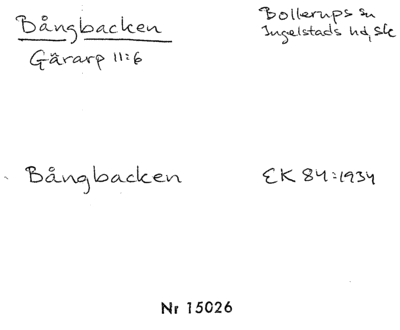 Bångbacken
Gårarp 11:6
Bollerups sn
Ingelstads hd, Sk
Bångbacken
EK 84:1934
Nr 15026